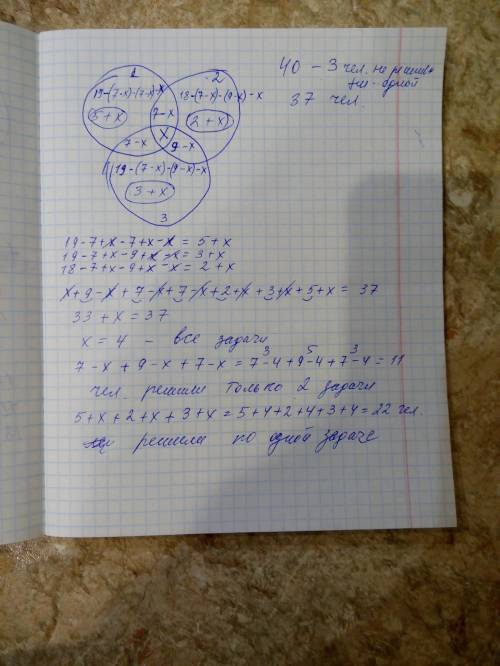 40 - 3 чел. не решив
ни одной
37 чел.
1
19-(7-x)-(7-x)-x
5+x
2
18-(7-x)-(9-x)-x
2+x
7-x
x
7-x
9-x
19-(7-x)-(9-x)-x
3+x
3
19-7+x-7+x-x = 5+x
19-7+x-9+x-x = 3+x
18-7+x-9+x-x = 2+x
x+9-x+7-x+7-x+2+x+3+x+5+x = 37
33+x = 37
x = 4 - все задачи
7-x+9-x+7-x = 7-4+9-4+7-4 = 11
3 5 3
чел. решили только 2 задачи
5+x+2+x+3+x = 5+4+2+4+3+4 = 22 чел.
решила по одной задаче